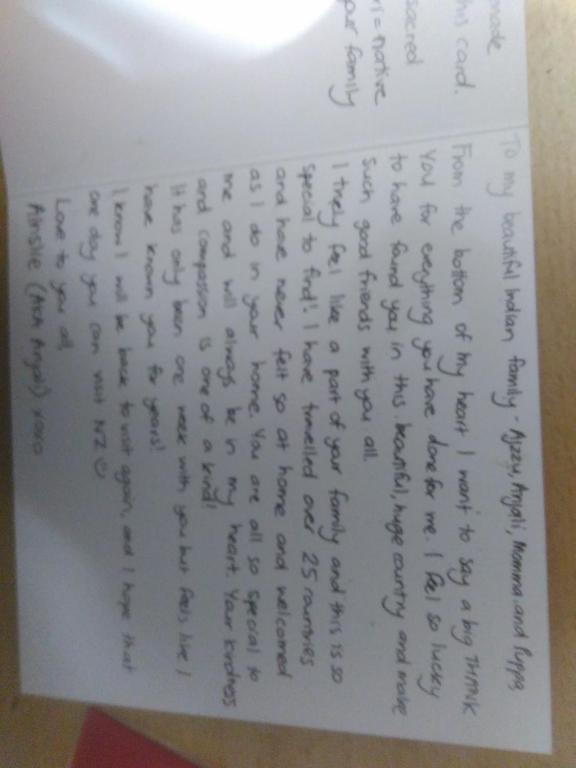 made
this card.
sacred
= native
your family
To my beautiful Indian family - Ajzzy, Anjali, Momma and Puppa
From the bottom of my heart I want to say a big THANK
You for everything you have done for me. I feel so lucky
to have found you in this beautiful, huge country and make
such good friends with you all.
I truely feel like a part of your family and this is so
special to find! I have travelled over 25 countries
and have never felt so at home and welcomed
as I do in your home. You are all so special to
me and will always be in my heart. Your kindness
and compassion is one of a kind!
It has only been one week with you but feels like I
have known you for years!
I know I will be back to visit again, and I hope that
one day you can visit NZ ☺
Love to you all,
Ainslie (Anjali) xoxo